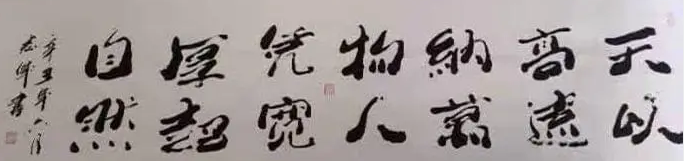 天以
高遠
納萬
物人
凭寬
厚超
自然
辛丑年六月